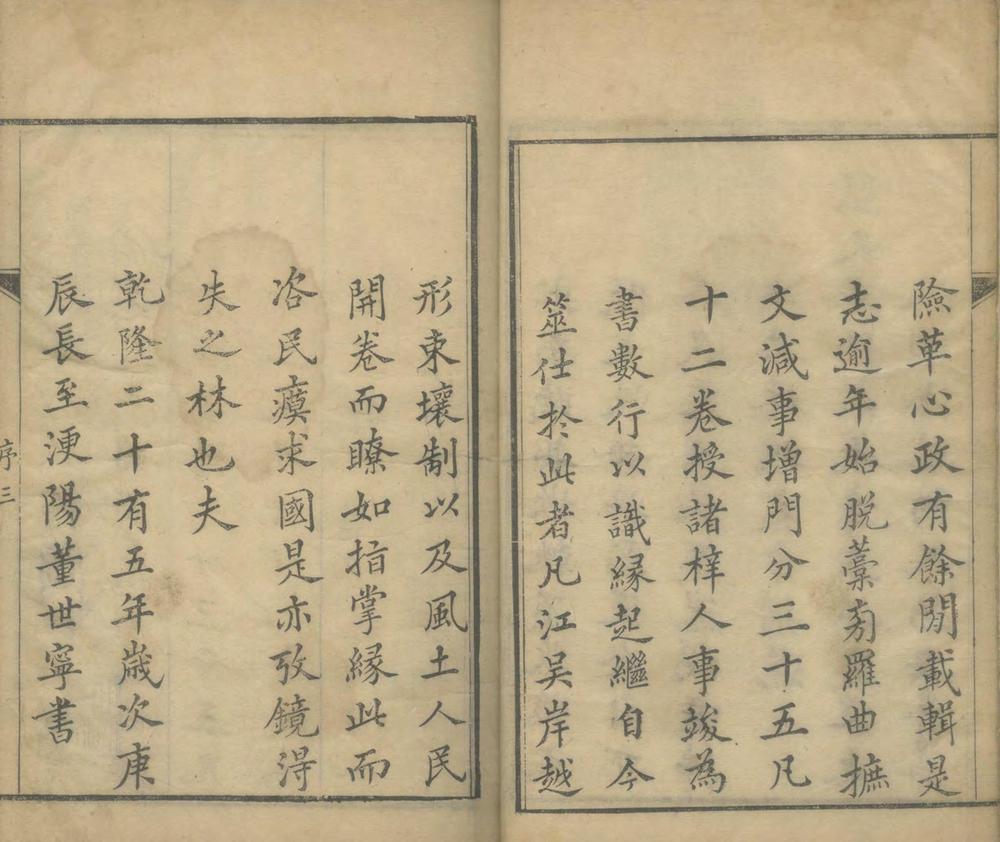 險革心政有餘閒載輯是
志逾年始脫藁旁羅曲摭
文減事增門分三十五凡
十二卷授諸梓人事竣為
書數行以識緣起繼自今
筮仕於此者凡江吴岸越
形束壤制以及風土人民
開卷而瞭如指掌緣此而
咨民瘼求國是亦攷鏡得
失之林也夫
乾隆二十有五年歲次庚
辰長至浭陽董世寧書
序 三